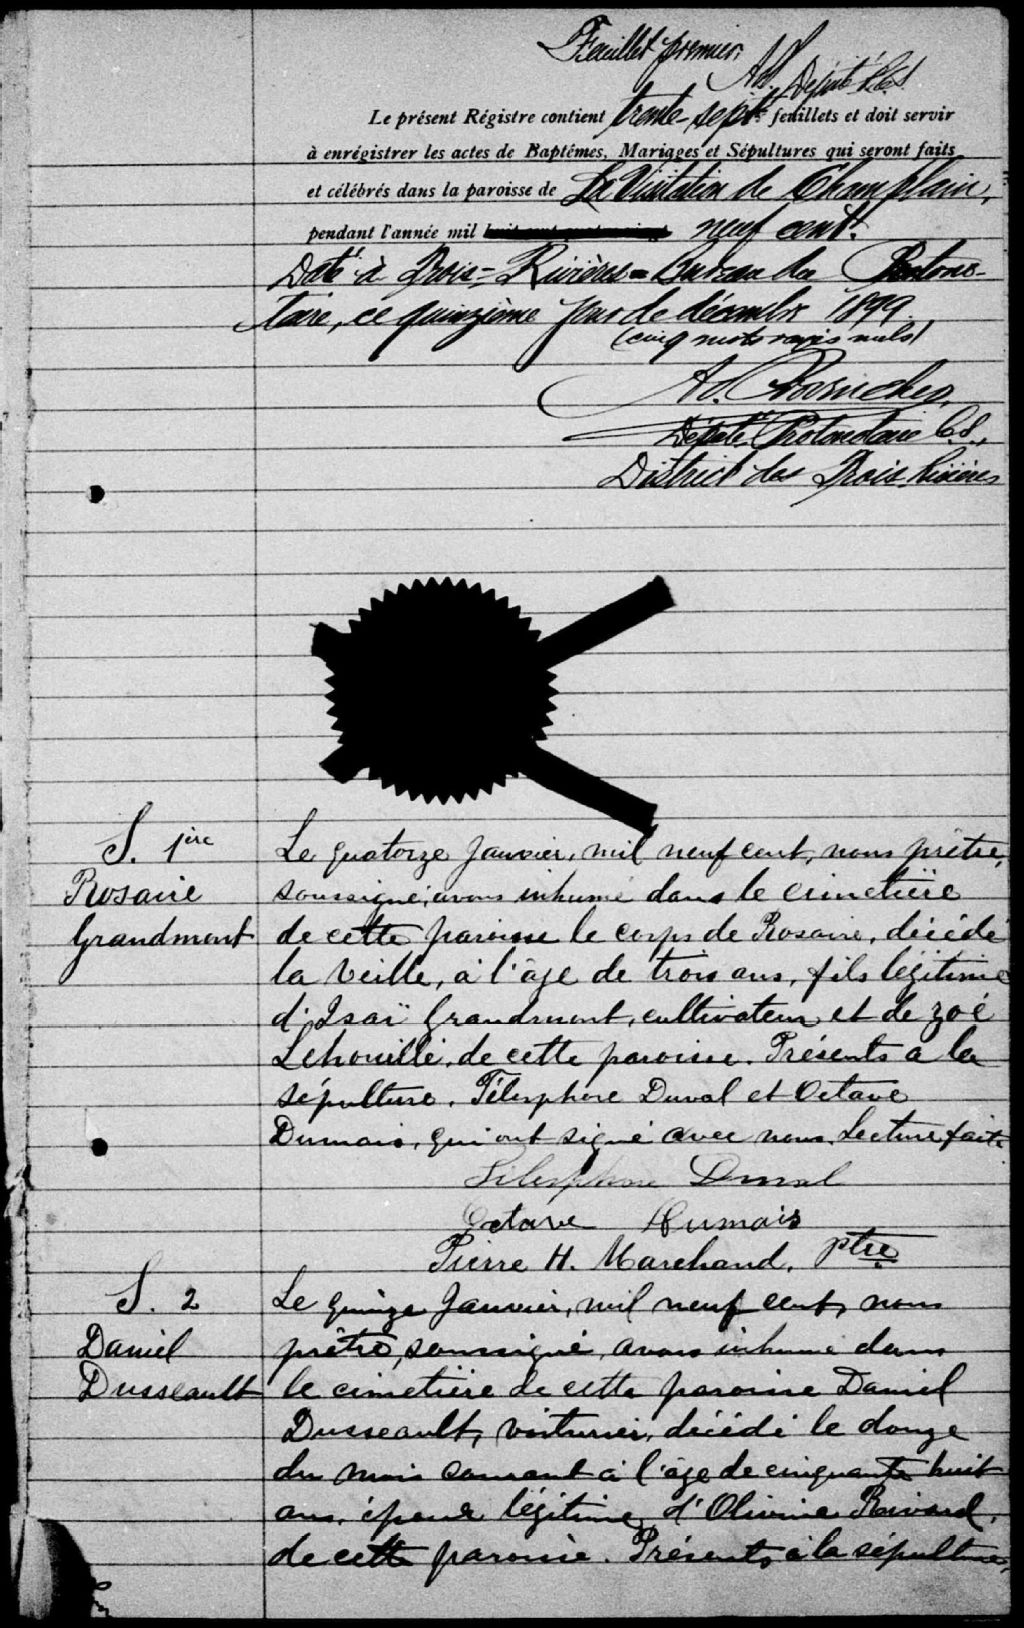 Feuillet premier.
Ad. Député P.C.S.
Le présent Régistre contient trente-sept feuillets et doit servir
à enrégistrer les actes de Baptêmes, Mariages et Sépultures qui seront faits
et célébrés dans la paroisse de La Visitation de Champlain,
pendant l'année mil neuf cent.
Daté à Trois-Rivières = Bureau du Protono-
taire, ce quinzième jour de décembre 1899.
(cinq mots rayés nuls)
Ad.
Député Protonotaire C.S.,
District des Trois-Rivières
S. 1ère
Rosaire
Grandmont
Le quatorze Janvier, mil neuf cent, nous prêtre,
soussigné, avons inhumé dans le cimetière
de cette paroisse le corps de Rosaire, décédé
la veille, à l'âge de trois ans, fils légitime
d'Isaï Grandmont, cultivateur, et de Zoé
Lehouillé, de cette paroisse. Présents à la
sépulture. Télesphore Duval et Octave
Dumais, qui ont signé avec nous. Lecture faite
Télesphore Duval
Octave Dumais
Pierre H. Marchand, ptre
S. 2
Daniel
Dusseault
Le quinze Janvier, mil neuf cent, nous
prêtre, soussigné, avons inhumé dans
le cimetière de cette paroisse Daniel
Dusseault, voiturier, décédé le douze
du mois courant à l'âge de cinquante huit
ans, époux légitime d'Olivine Rivard,
de cette paroisse. Présents, à la sépulture,